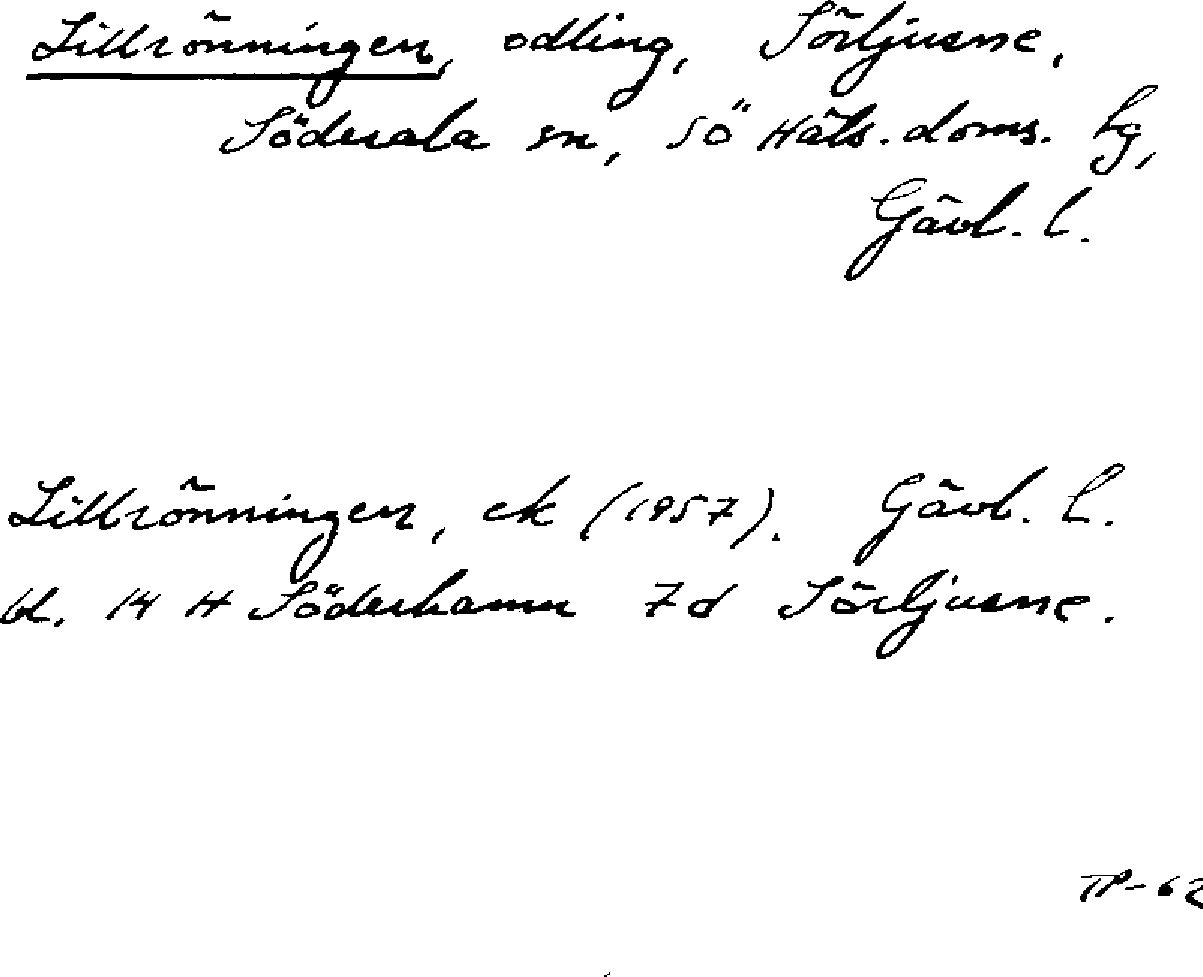 Lillrönningen, odling, Sörljusne,
Söderala sn, Sö Häls. doms. hg,
Gävl. l.
Lillrönningen, ek (1957). Gävl. l.
bl. 14 H Söderhamn 7d Sörljusne.
TP-62